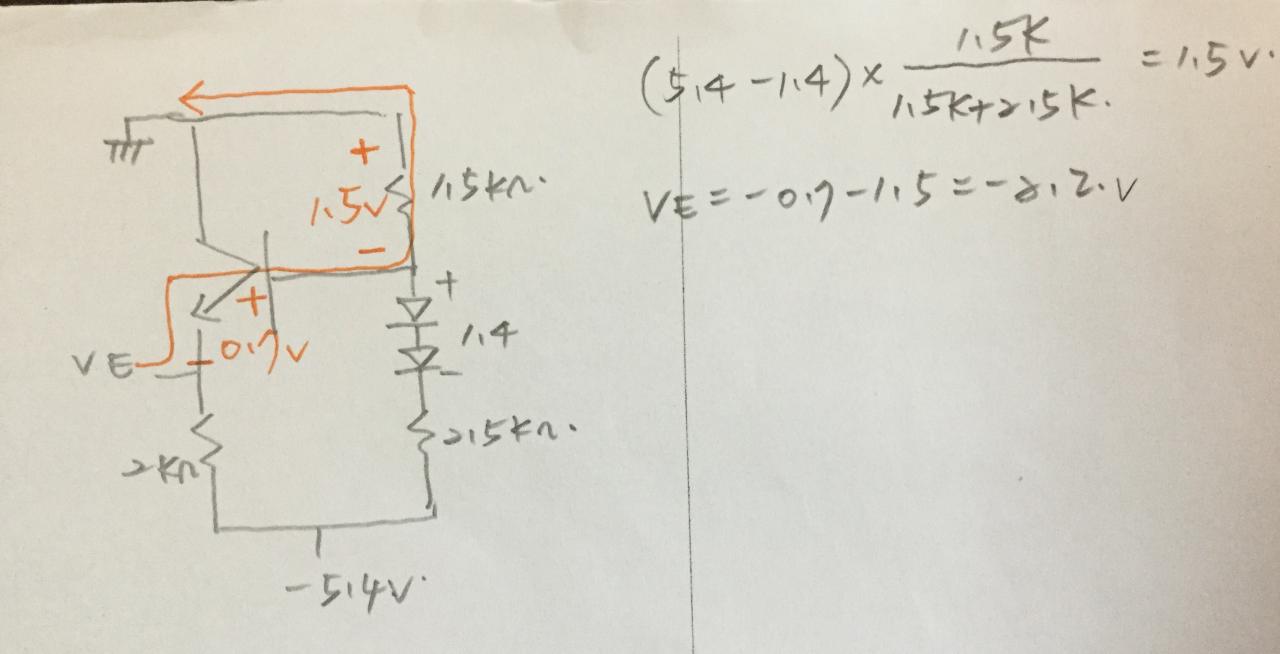 (5.4 - 1.4) × 1.5K / 1.5K+2.5K. = 1.5V.
VE = -0.7 - 1.5 = -2.2.V
+
1.5V
1.5KΩ.
-
+
+
1.4
0.7V
VE
-
-
2.5KΩ.
2KΩ
-5.4V.